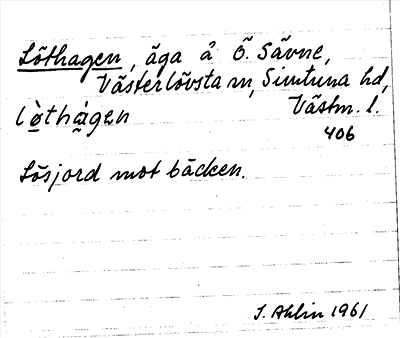 Löthagen, äga å Ö. Sävne,
Västerlövsta sn, Simtuna hd,
lòthàgen Västm. l.
406
Lösjord mot bäcken.
I. Ahlin 1961